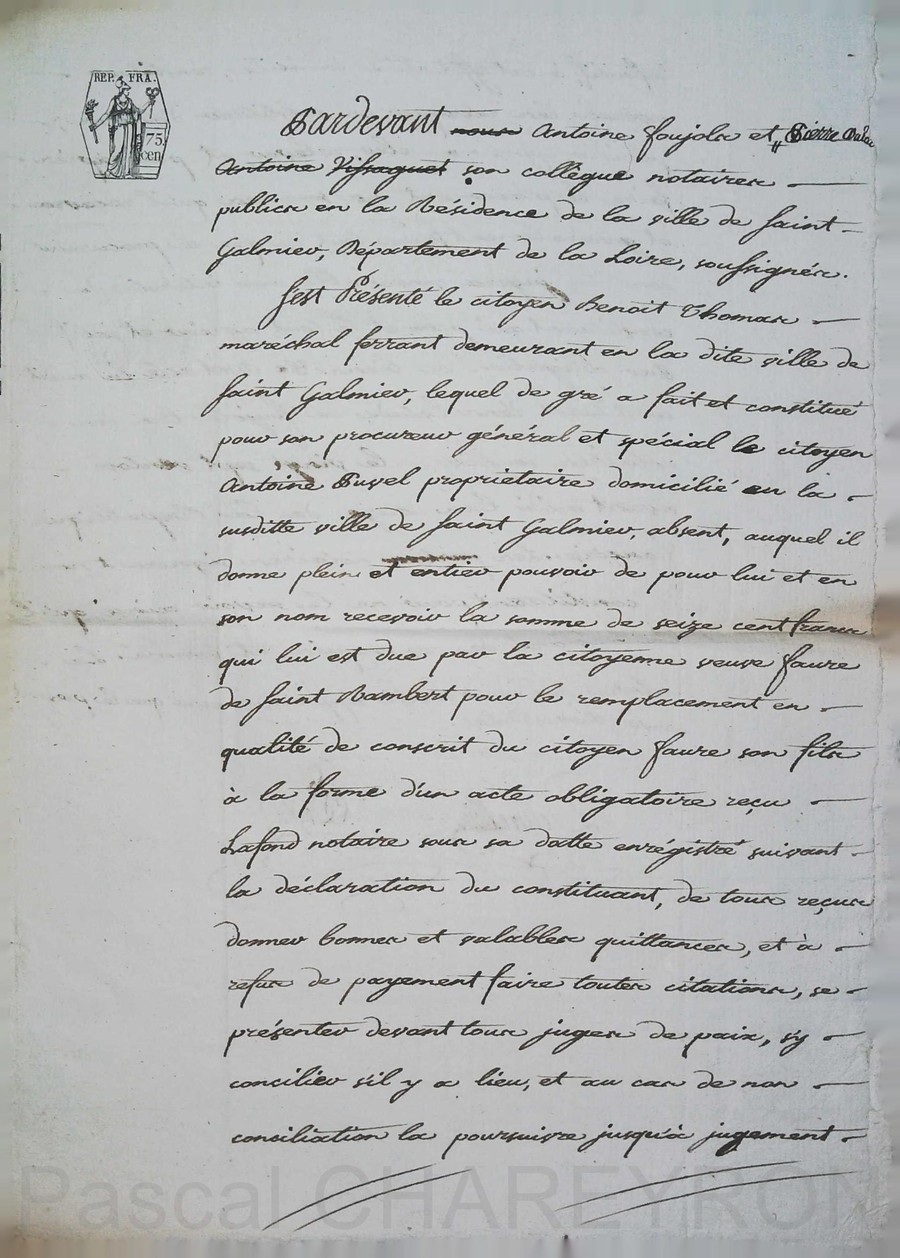 REP. FRA.
75
cen
Pardevant nous Antoine Foujols et Pierre
Antoine Vissaguet son collègue notaires
publics en la Résidence de la ville de Saint-
Galmier, Département de la Loire, soussignés.
S'est Présenté le citoyen Benoit Thomas
maréchal ferrant demeurant en la dite ville de
Saint Galmier, lequel de gré a fait et constitué
pour son procureur général et spécial le citoyen
Antoine propriétaire domicilié en la
susditte ville de Saint Galmier, absent, auquel il
donne plein et entier pouvoir de pour lui et en
son nom recevoir la somme de seize cent francs
qui lui est due par la citoyenne veuve Faure
de Saint Rambert pour le remplacement en
qualité de conscrit du citoyen Faure son fils
à la forme d'un acte obligatoire reçu
Lafond notaire sous sa datte enrégistré suivant
la déclaration du constituant, de tous reçus
donner bonnes et valables quittances, et à
refus de payement faire toutes citations, se
présenter devant tous juges de paix, s'y
concilier s'il y a lieu, et au cas de non
conciliation la poursuivre jusqu'à jugement
Pascal CHAREYRON